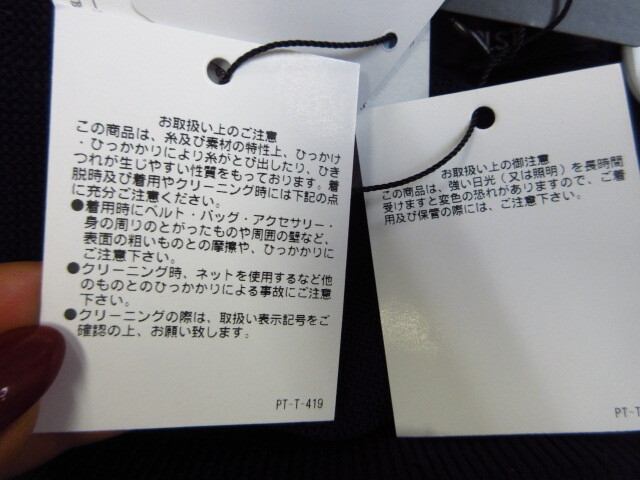 お取扱い上のご注意
この商品は、糸及び素材の特性上、ひっかけ
・ひっかかりにより糸がとび出したり、ひき
つれが生じやすい性質をもっております。着
脱時及び着用やクリーニング時には下記の点
に充分ご注意ください。
●着用時にベルト・バッグ・アクセサリー・
身の周りのとがったものや周囲の壁など、
表面の粗いものとの摩擦や、ひっかかりに
ご注意下さい。
●クリーニング時、ネットを使用するなど他
のものとのひっかかりによる事故にご注意
下さい。
●クリーニングの際は、取扱い表示記号をご
確認の上、お願い致します。
PT-T-419
お取扱い上の御注意
この商品は、強い日光（又は照明）を長時間
受けますと変色の恐れがありますので、ご着
用及び保管の際には、ご注意下さい。
PT-T